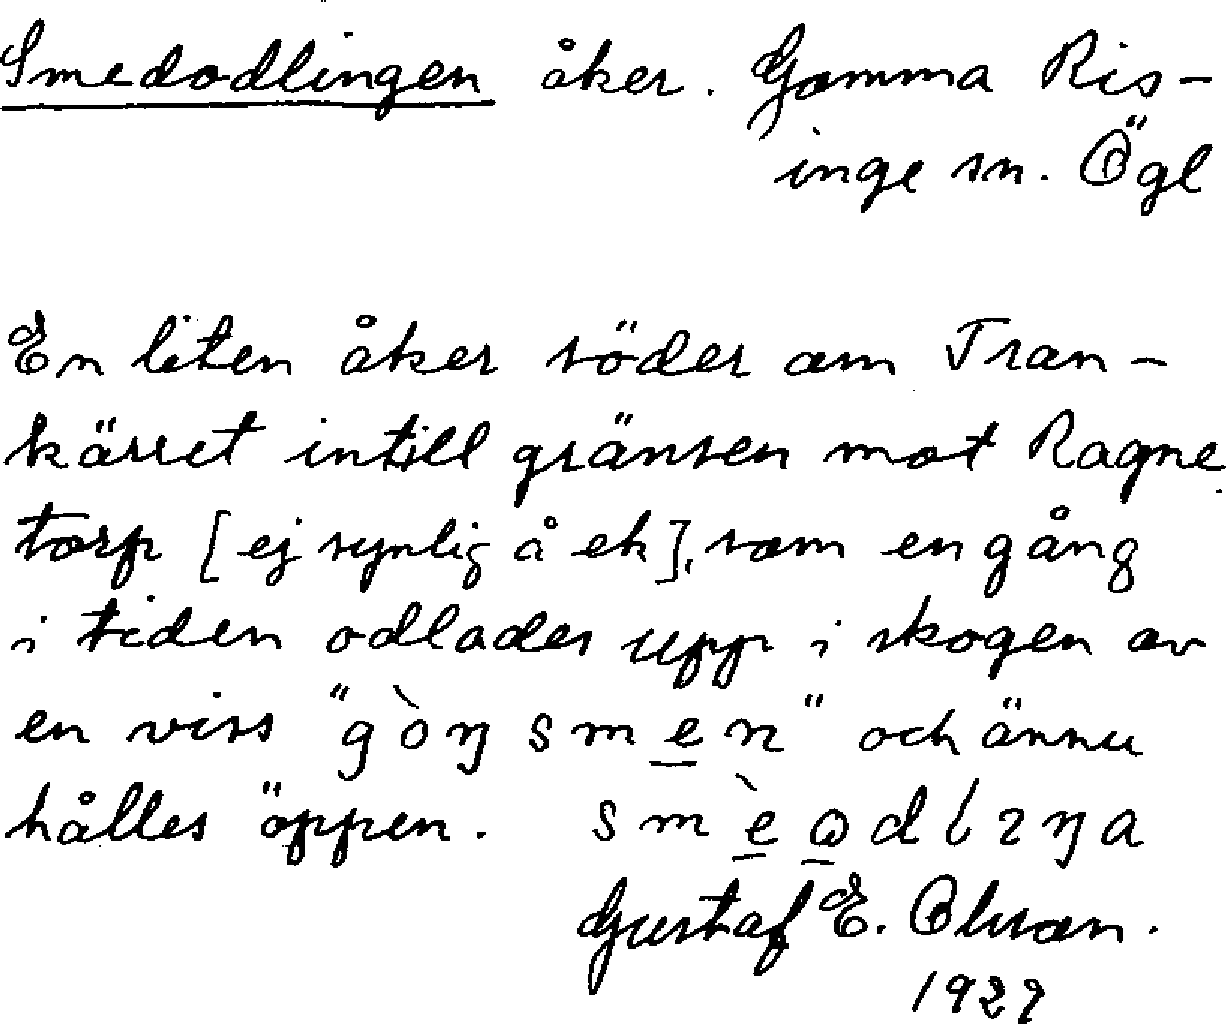 Smedodlingen åker. Gomma Ris-
inge sn. Ögl
En liten åker söder om Tran-
kärret intill gränsen mot Ragne
torp [ej synlig å ek], som en gång
i tiden odlades upp i skogen av
en viss "gòŋ smen" och ännu
hålles öppen. smèǫdlıŋa
Gustaf E. Olson.
1929